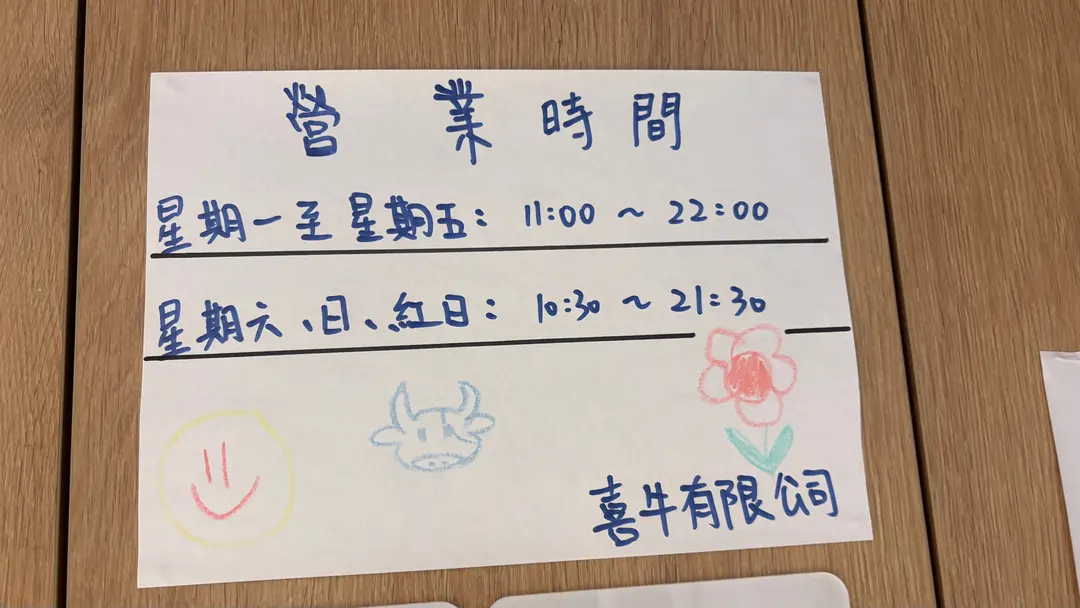 營業時間
星期一至星期五：11:00 ~ 22:00
星期六、日、紅日：10:30 ~ 21:30
喜牛有限公司